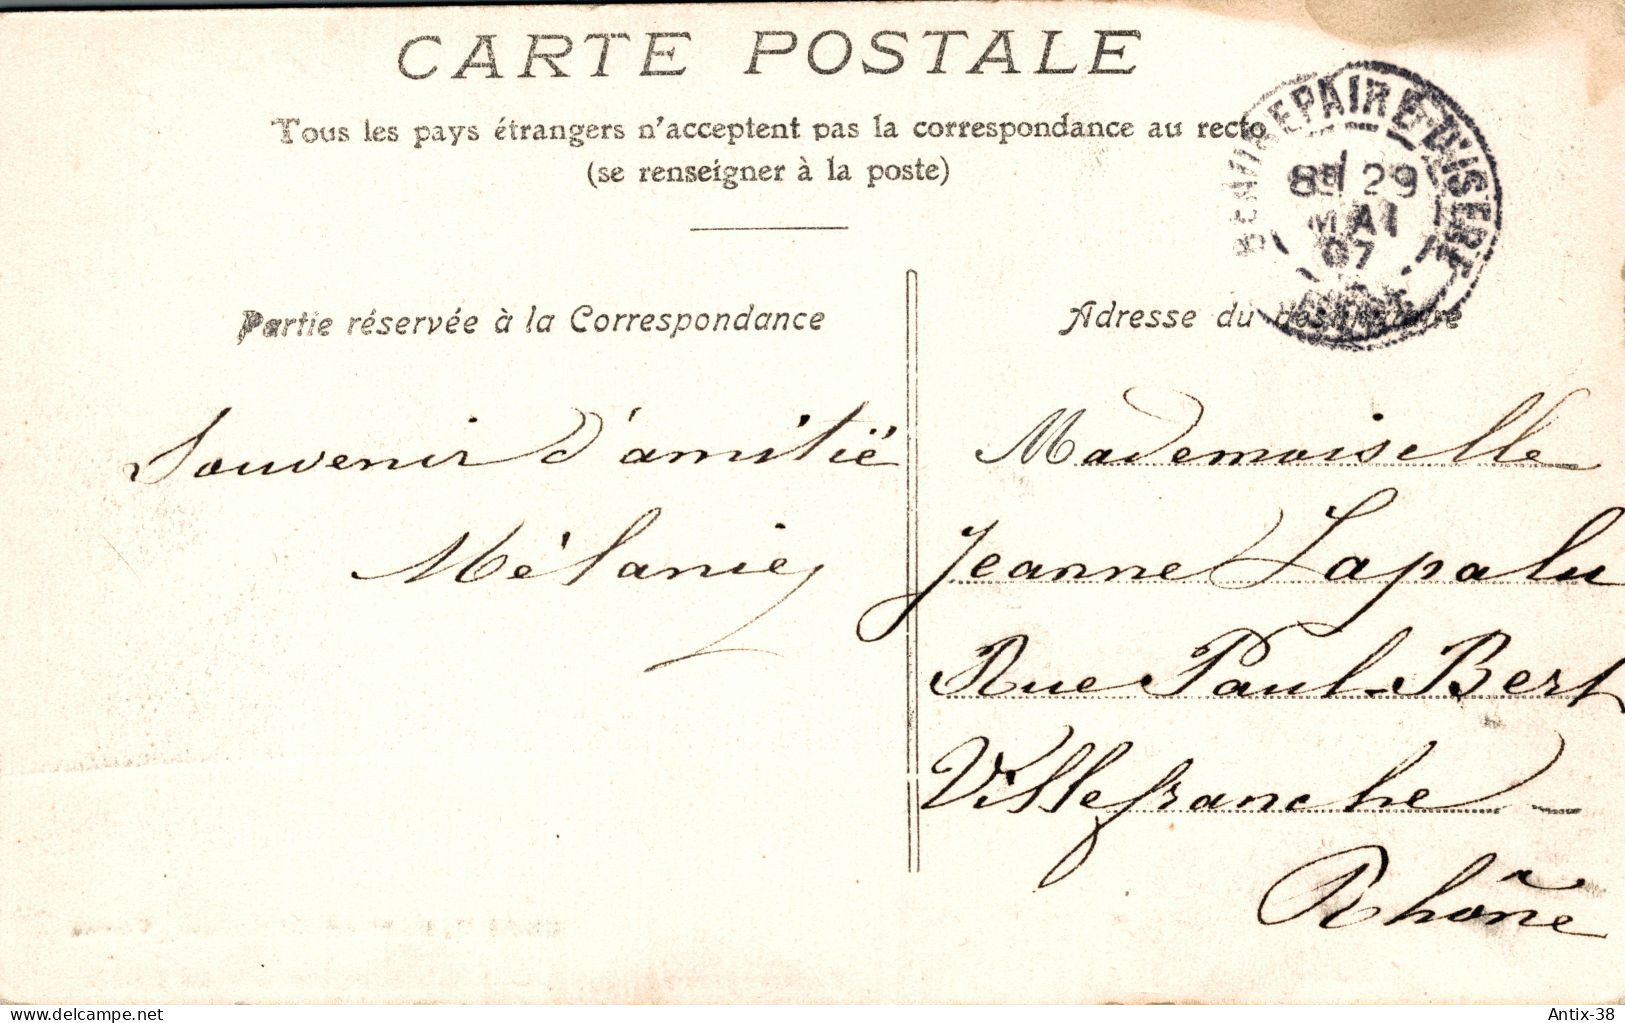 CARTE POSTALE
Tous les pays étrangers n'acceptent pas la correspondance au recto
(se renseigner à la poste)
BEAUREPAIRE-D'ISERE
8E 29
MAI
07
Partie réservée à la Correspondance
Adresse du destinataire
Souvenir d'amitié
Mélanie
Mademoiselle
Jeanne Lapalu
Rue Paul-Bert
Villefranche
Rhône
delcampe.net
Antix-38